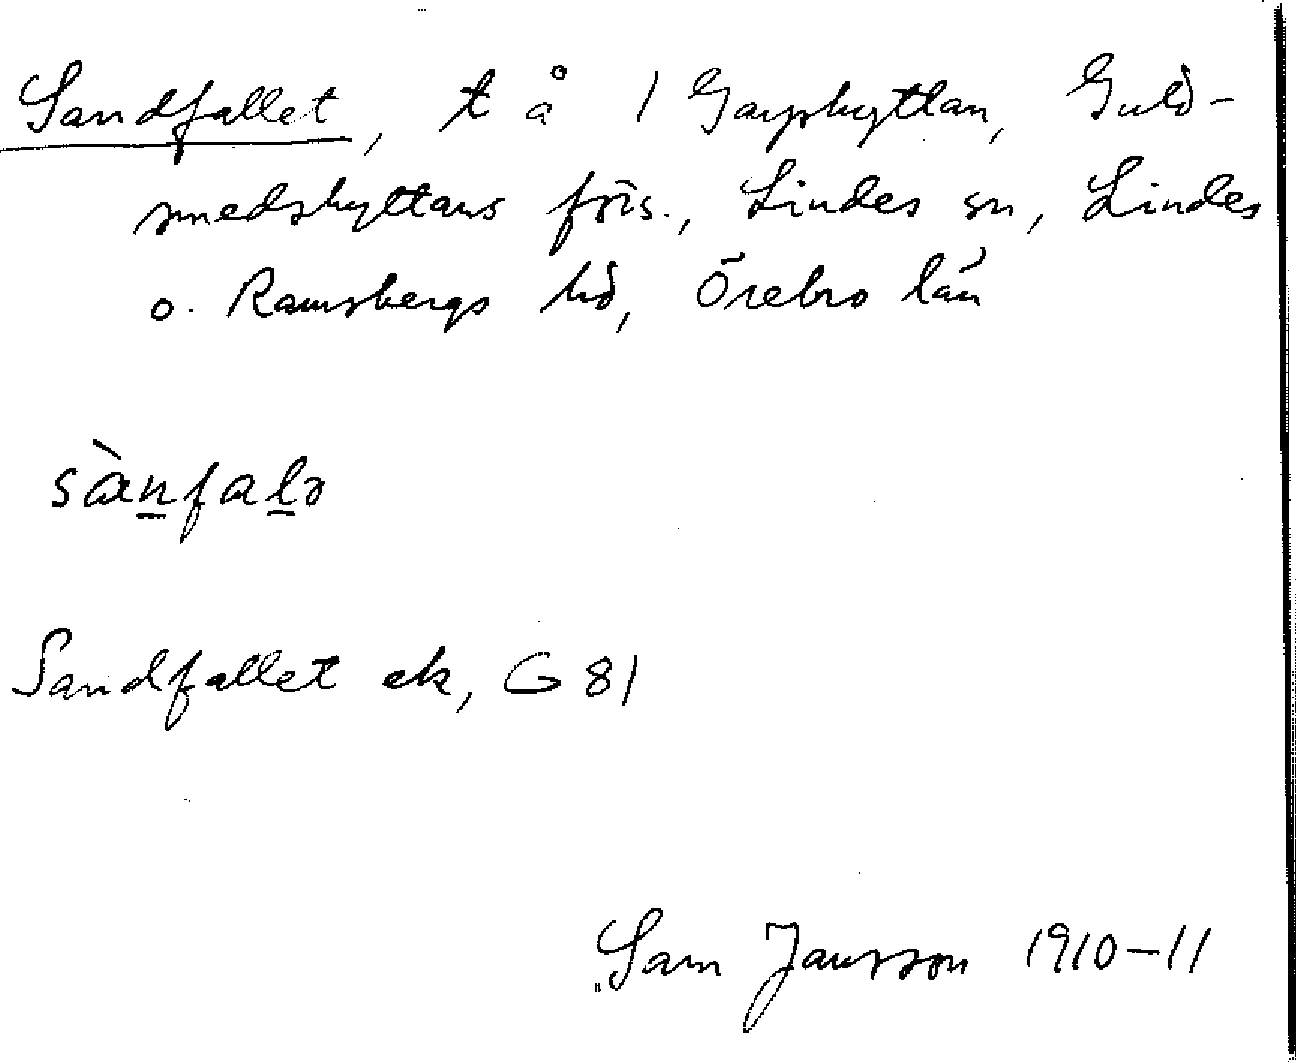 Sandfallet, t å 1 Garphyttan, Guld-
smedshyttans förs., Lindes sn, Lindes
o. Ramsbergs hd, Örebro län
sànfalə
Sandfallet ek, G 81
Sam Jansson 1910-11